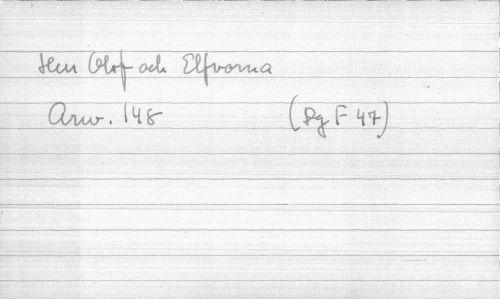 Herr Olof och Elfvorna
Arw. 148 (Dg F 47)